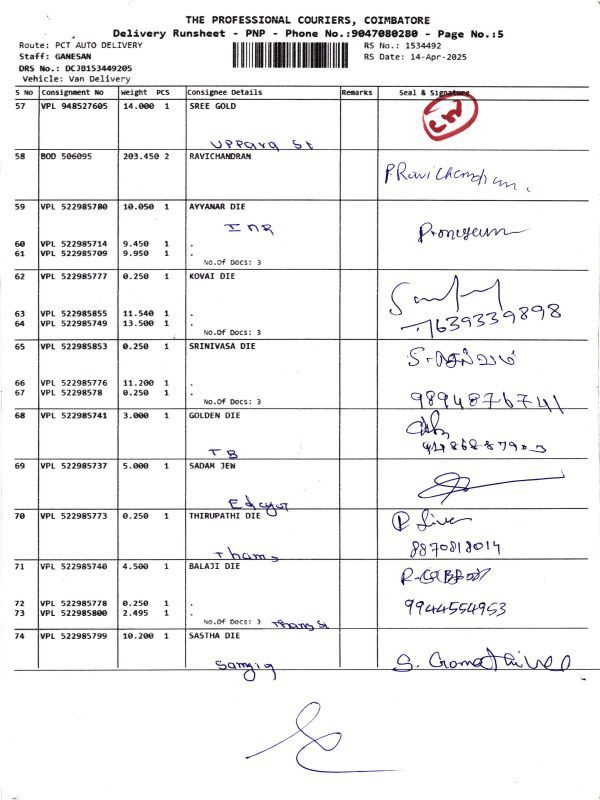 THE PROFESSIONAL COURIERS, COIMBATORE
Delivery Runsheet - PNP - Phone No.:9047080280 - Page No.:5
Route: PCT AUTO DELIVERY
RS No.: 1534492
Staff: GANESAN
RS Date: 14-Apr-2025
DRS No.: DCJB153449205
Vehicle: Van Delivery
S No Consignment No Weight PCS Consignee Details Remarks Seal & Signature
57 VPL 948527605 14.000 1 SREE GOLD
Uppara St
58 BOD 506095 203.450 2 RAVICHANDRAN
P Ravichandran.
59 VPL 522985780 10.050 1 AYYANAR DIE
60 VPL 522985714 9.450 1 .
61 VPL 522985709 9.950 1 .
No.Of Docs: 3
62 VPL 522985777 0.250 1 KOVAI DIE
63 VPL 522985855 11.540 1 .
7639339898
64 VPL 522985749 13.500 1 .
No.Of Docs: 3
65 VPL 522985853 0.250 1 SRINIVASA DIE
66 VPL 522985776 11.200 1 .
67 VPL 52298578 0.250 1 .
No.Of Docs: 3
9894876741
68 VPL 522985741 3.000 1 GOLDEN DIE
TB
69 VPL 522985737 5.000 1 SADAM JEW
70 VPL 522985773 0.250 1 THIRUPATHI DIE
8870818014
71 VPL 522985740 4.500 1 BALAJI DIE
72 VPL 522985778 0.250 1 .
9944554953
73 VPL 522985800 2.495 1 .
No.Of Docs: 3
74 VPL 522985799 10.200 1 SASTHA DIE